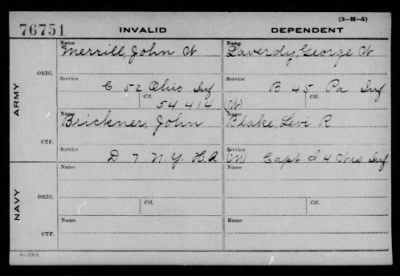 (3-H-5)
76751 INVALID DEPENDENT
Name Name
Merrill, John W Laverdy, George W
ARMY ORIG. Service Service
C 52 Ohio Inf B 45 Pa Inf
Ctf. 54414 Ctf. (W)
Name Name
Brickner, John Blake, Levi R
CTF. D 7 N.Y. H.A (W) Capt I 4 Inf
Service Service
NAVY ORIG. Ctf. Ctf.
Name Name
CTF.